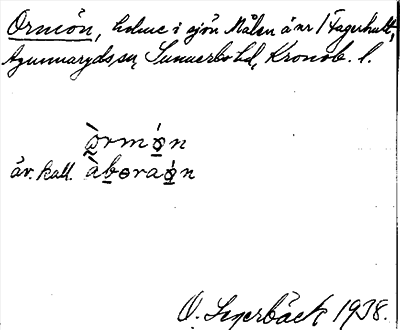 Ormön, holme i sjön Målen å nr 1 Fagerhult,
Agunnaryds sn, Sunnerbo hd, Kronob. l.
òrmón
äv. kall. àboraón
O. Segerbäck 1938.